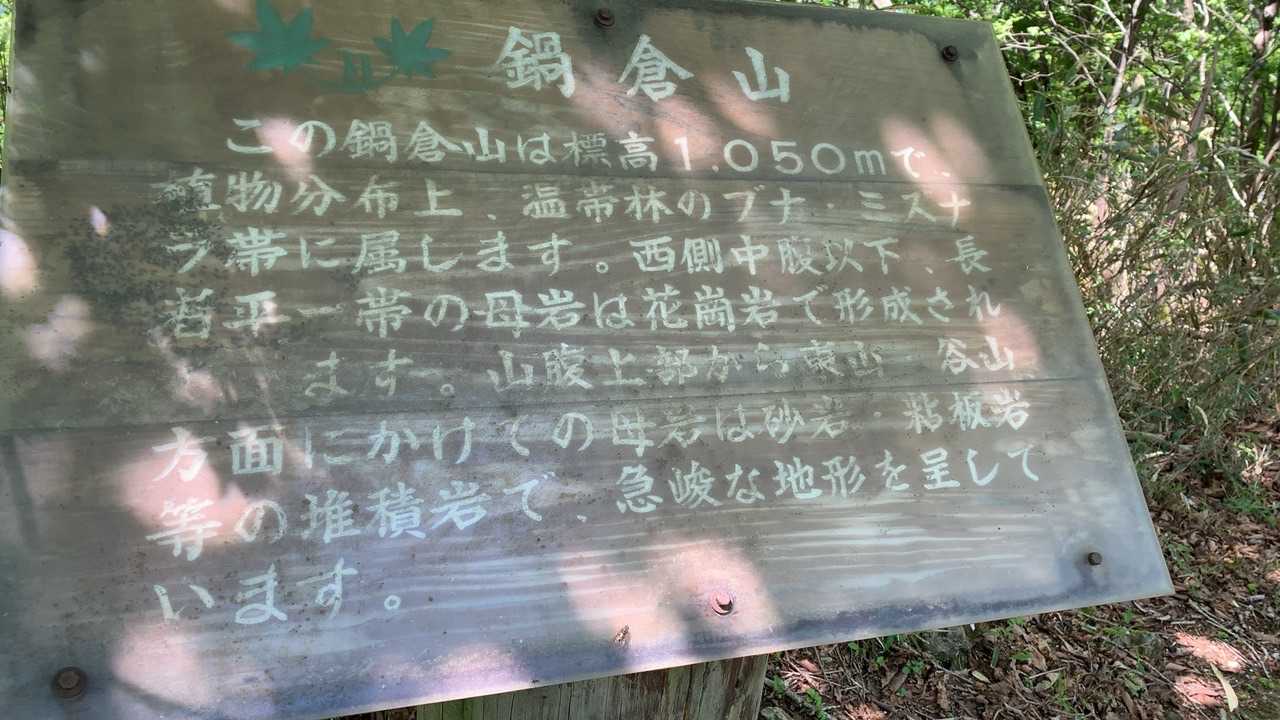 鍋倉山
この鍋倉山は標高1.050mで、
植物分布上、温帯林のブナ・ミズナ
ラ帯に属します。西側中腹以下、長
者平一帯の母岩は花崗岩で形成され
ます。山腹上部から東山 谷山
方面にかけての母岩は砂岩・粘板岩
等の堆積岩で、急峻な地形を呈して
います。